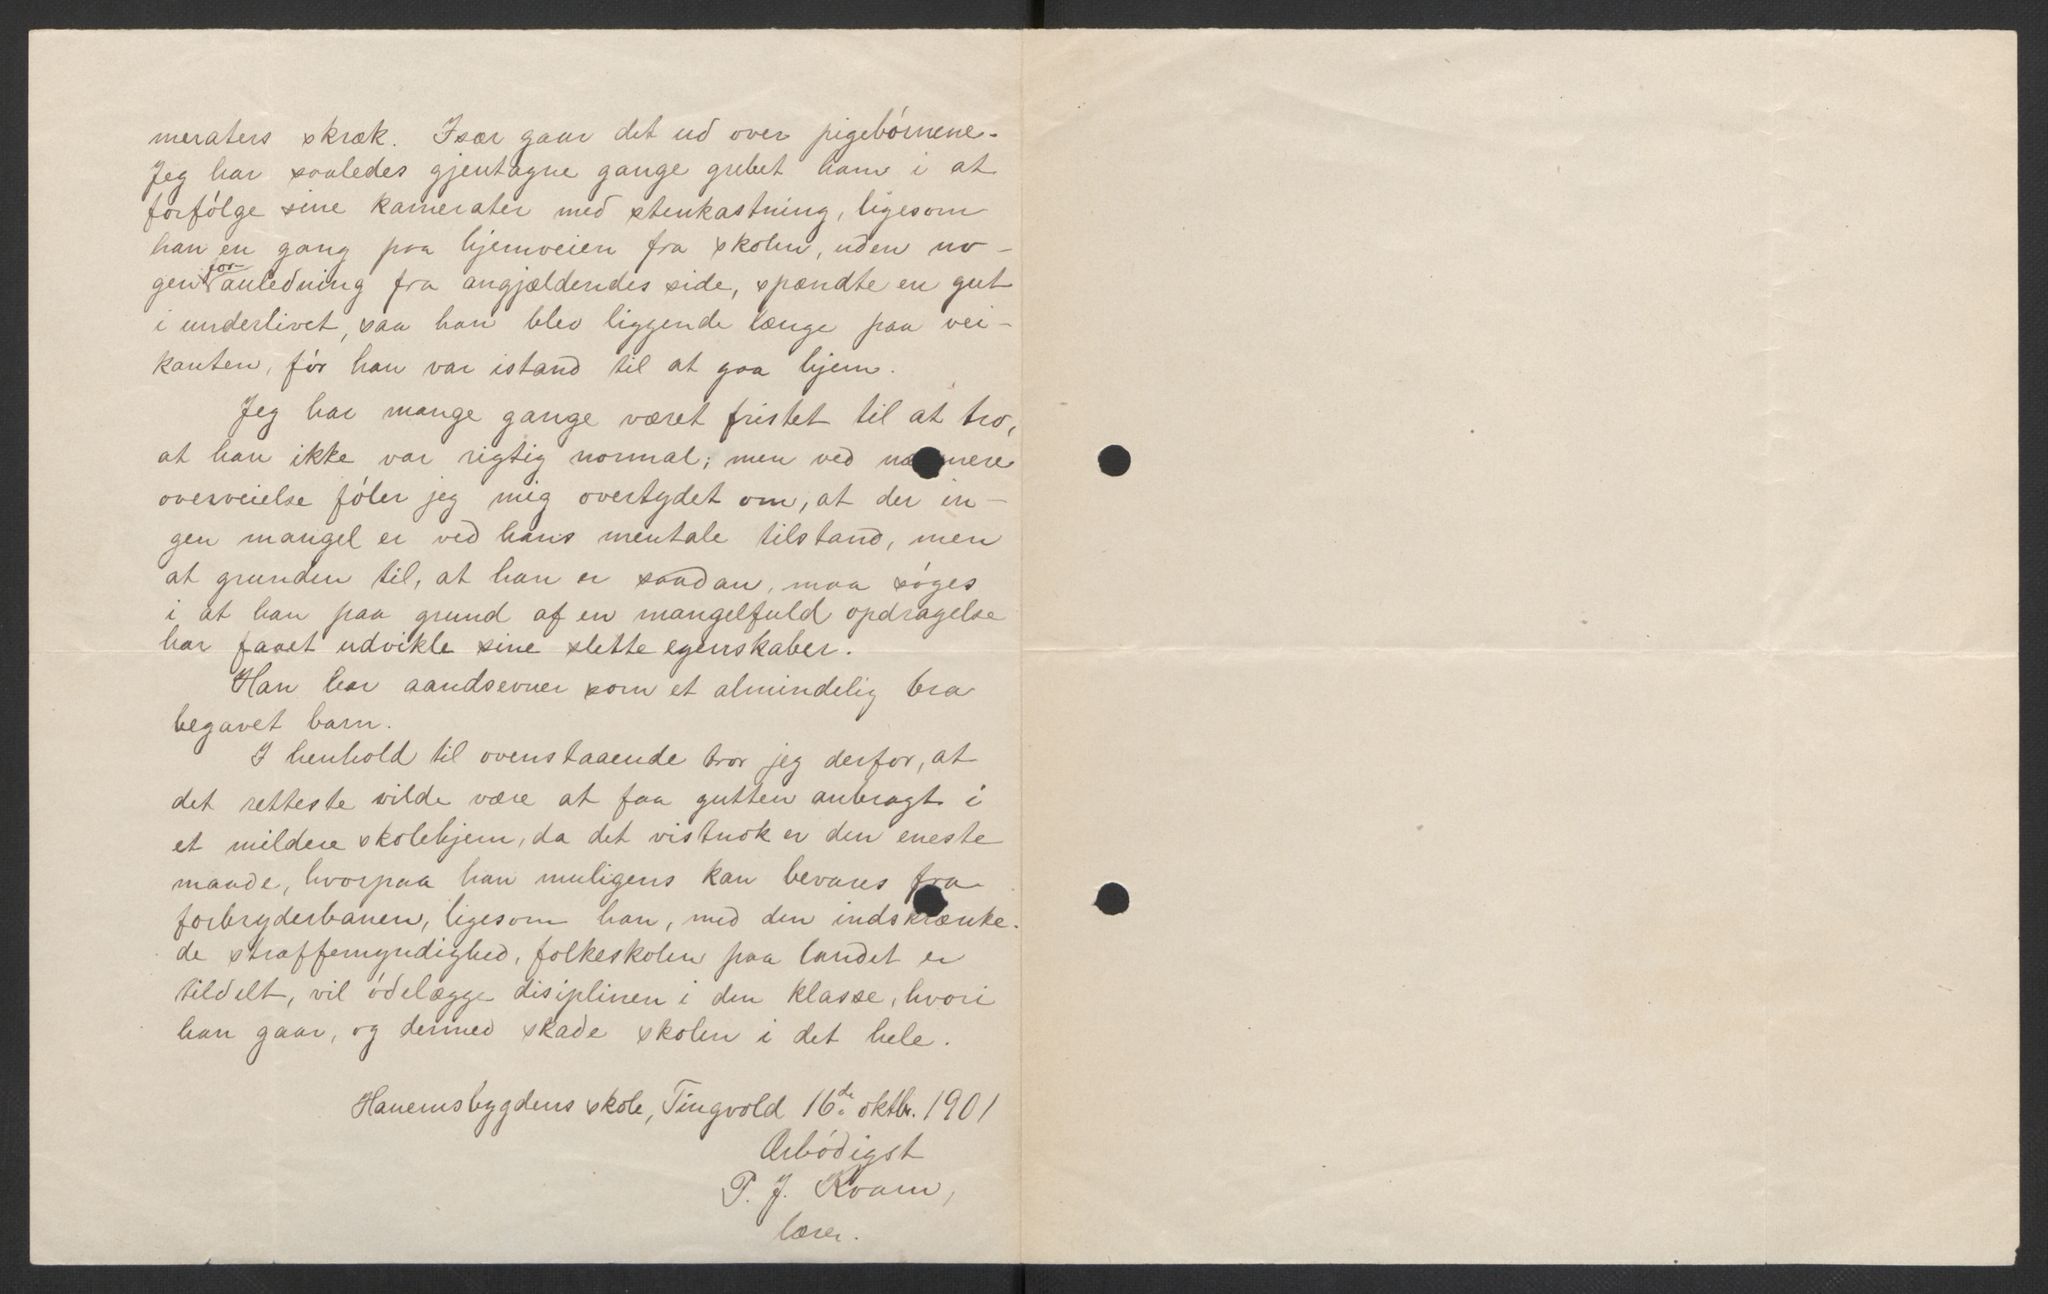 meraters skræk. Især gaar det ud over pigebórnene.
Jeg har saaledes gjentagne gange grebet ham i at
forfólge sine kamerater med stenkastning, ligesom
han en gang paa hjemveien fra skolen, uden no-
gen foranledning fra angjældendes side, spændte en gut
i underlivet, saa han blev liggende længe paa vei-
kanten, fór han var istand til at gaa hjem.
Jeg har mange gange været fristet til at tro,
at han ikke var rigtig normal; men ved nærmere
overveielse fóler jeg mig overtydet om, at der in-
gen mangel er ved hans mentale tilstand, men
at grunden til, at han er saadan, maa sóges
i at han paa grund af en mangelfuld opdragelse
har faaet udvikle sine slette egenskaber.
Han har aandsevner som et almindelig bra
begavet barn.
I henhold til ovenstaaende tror jeg derfor, at
det retteste vilde være at faa gutten anbragt i
et mildere skolehjem, da det vistnok er den eneste
maade, hvorpaa han muligens kan bevares fra
forbryderbanen, ligesom han, med den indskrænke-
de straffemyndighed, folkeskolen paa landet er
tildelt, vil ódelægge disiplinen i den klasse, hvori
han gaar, og dermed skade skolen i det hele.
Hanemsbygdens skole, Tingvold 16de oktbr. 1901
Ærbódigst
P. J. Kvam,
lærer.